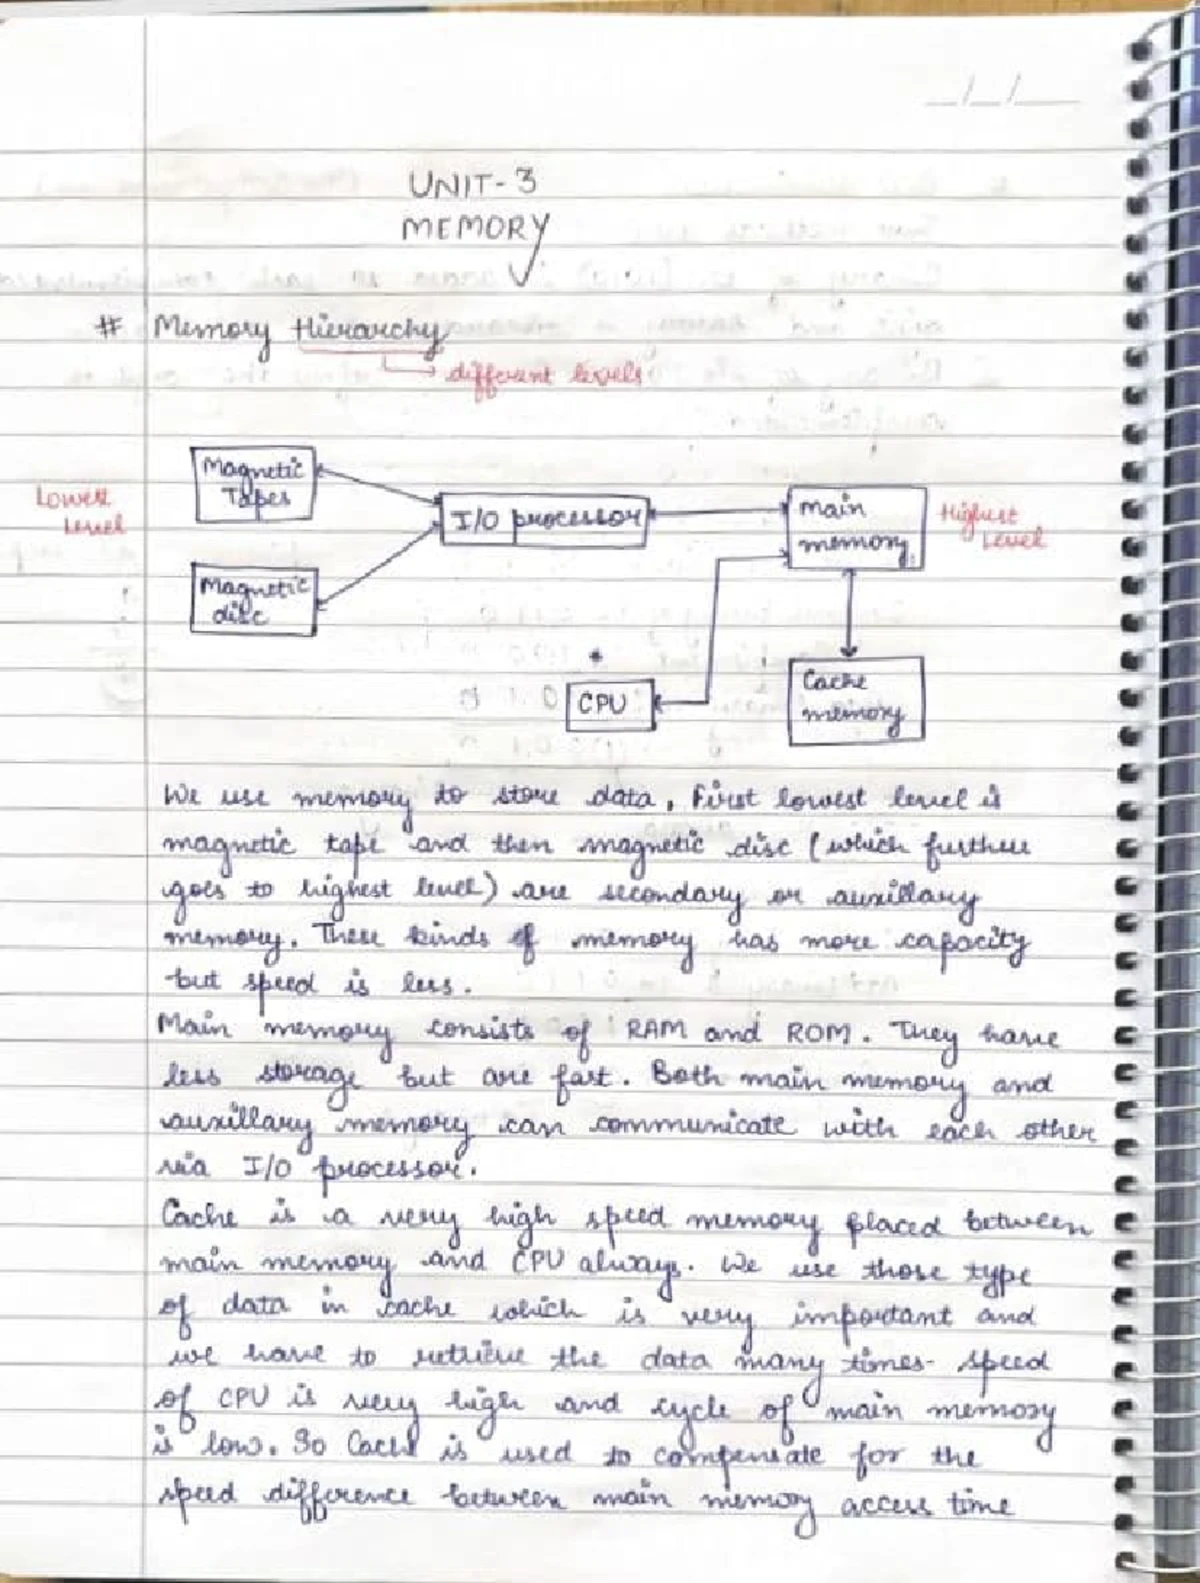 __/__/____
UNIT-3
MEMORY
# Memory Hierarchy
different levels
Magnetic
Tapes
Lowest
Level
I/O processor
main
memory
Highest
Level
Magnetic
disc
CPU
Cache
memory
We use memory to store data. First lowest level is
magnetic tape and then magnetic disc (which further
goes to highest level) are secondary or auxillary
memory. These kinds of memory has more capacity
but speed is less.
Main memory consists of RAM and ROM. They have
less storage but are fast. Both main memory and
auxillary memory can communicate with each other
via I/O processor.
Cache is a very high speed memory placed between
main memory and CPU always. We use those type
of data in cache which is very important and
we have to retrieve the data many times. speed
of CPU is very high and cycle of main memory
is low. So Cache is used to compensate for the
speed difference between main memory access time